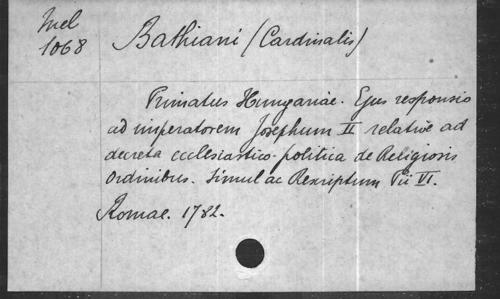 Mel
1068
Bathiani (Cardinalis)
Primatus Hungariae. Ejus responsio
ad imperatorem Josephum II relative ad
decreta ecclesiastico-politica de Religiosis
Ordinibus. Simul ac Rescriptum Pii VI.
Romae. 1782.